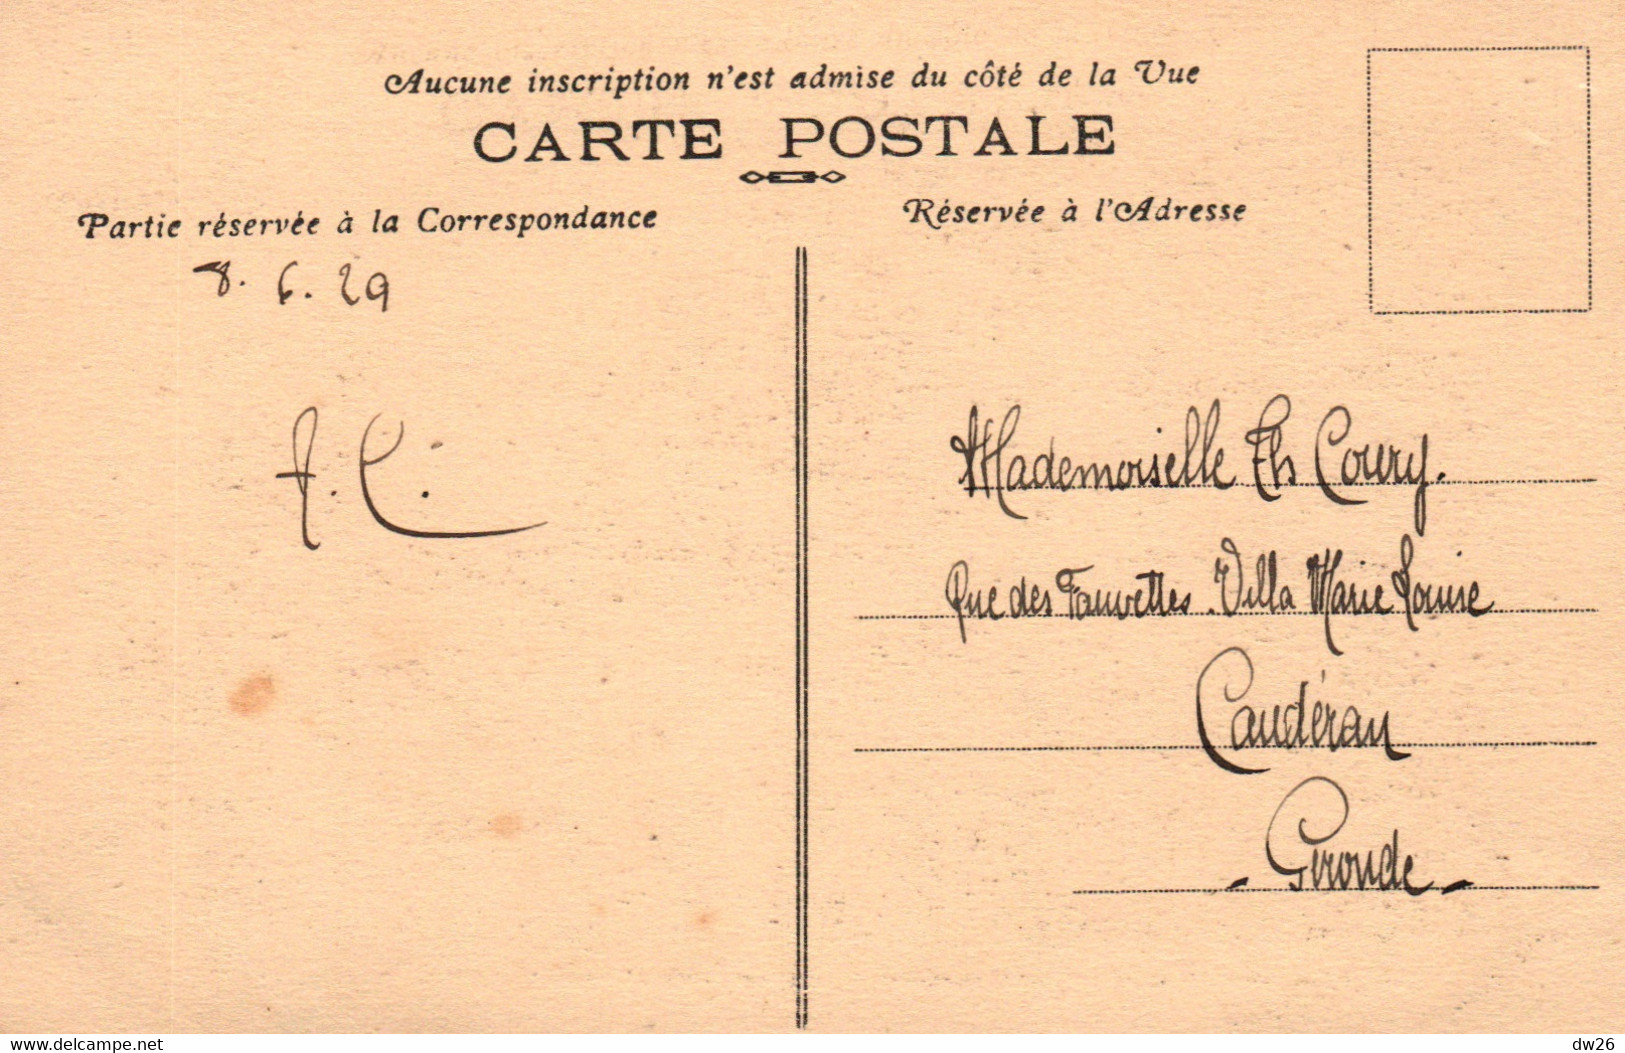 Aucune inscription n'est admise du côté de la Vue
CARTE POSTALE
Partie réservée à la Correspondance
Réservée à l'Adresse
8. 6. 29
Mademoiselle Th Coury.
Rue des Fauvettes. Villa Marie Louise
Caudéran
- Gironde -
www.delcampe.net
dw26